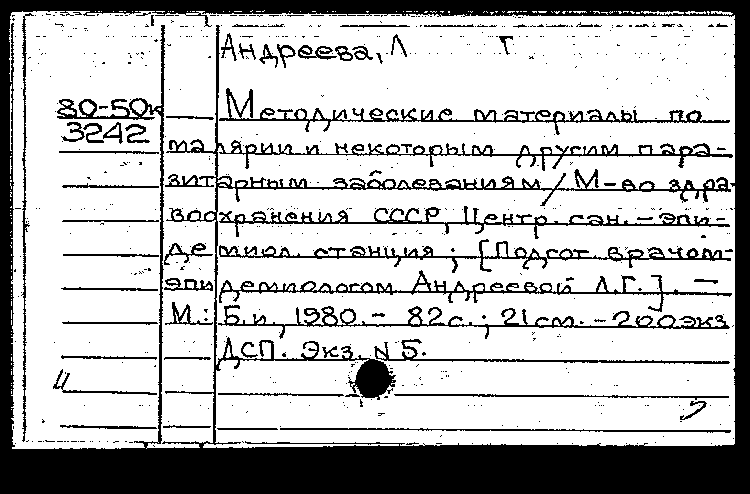 Андреева, Л Г
80-50к
3242
Методические материалы по
малярии и некоторым другим пара-
зитарным заболеваниям / М-во здра-
воохранения СССР, Центр. сан.-эпи-
демиол. станция ; [Подгот. врачом-
эпидемиологом Андреевой Л.Г.]. —
М.: Б.и, 1980. - 82 с. ; 21 см. - 200 экз
ДСП. Экз. N 5.